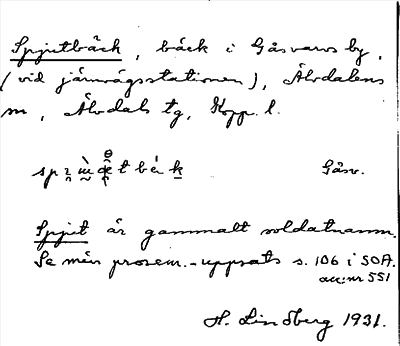 Spjutbäck, bäck i Gåsvarvs by,
(vid järnvägsstationen), Älvdalens
sn, Älvdals tg, Kopp. l.
Gåsv.
Spjut är gammalt soldatnamn.
Se min prosem.-uppsats s. 106 i SOA.
acc: nr 551
H. Lindberg 1931.